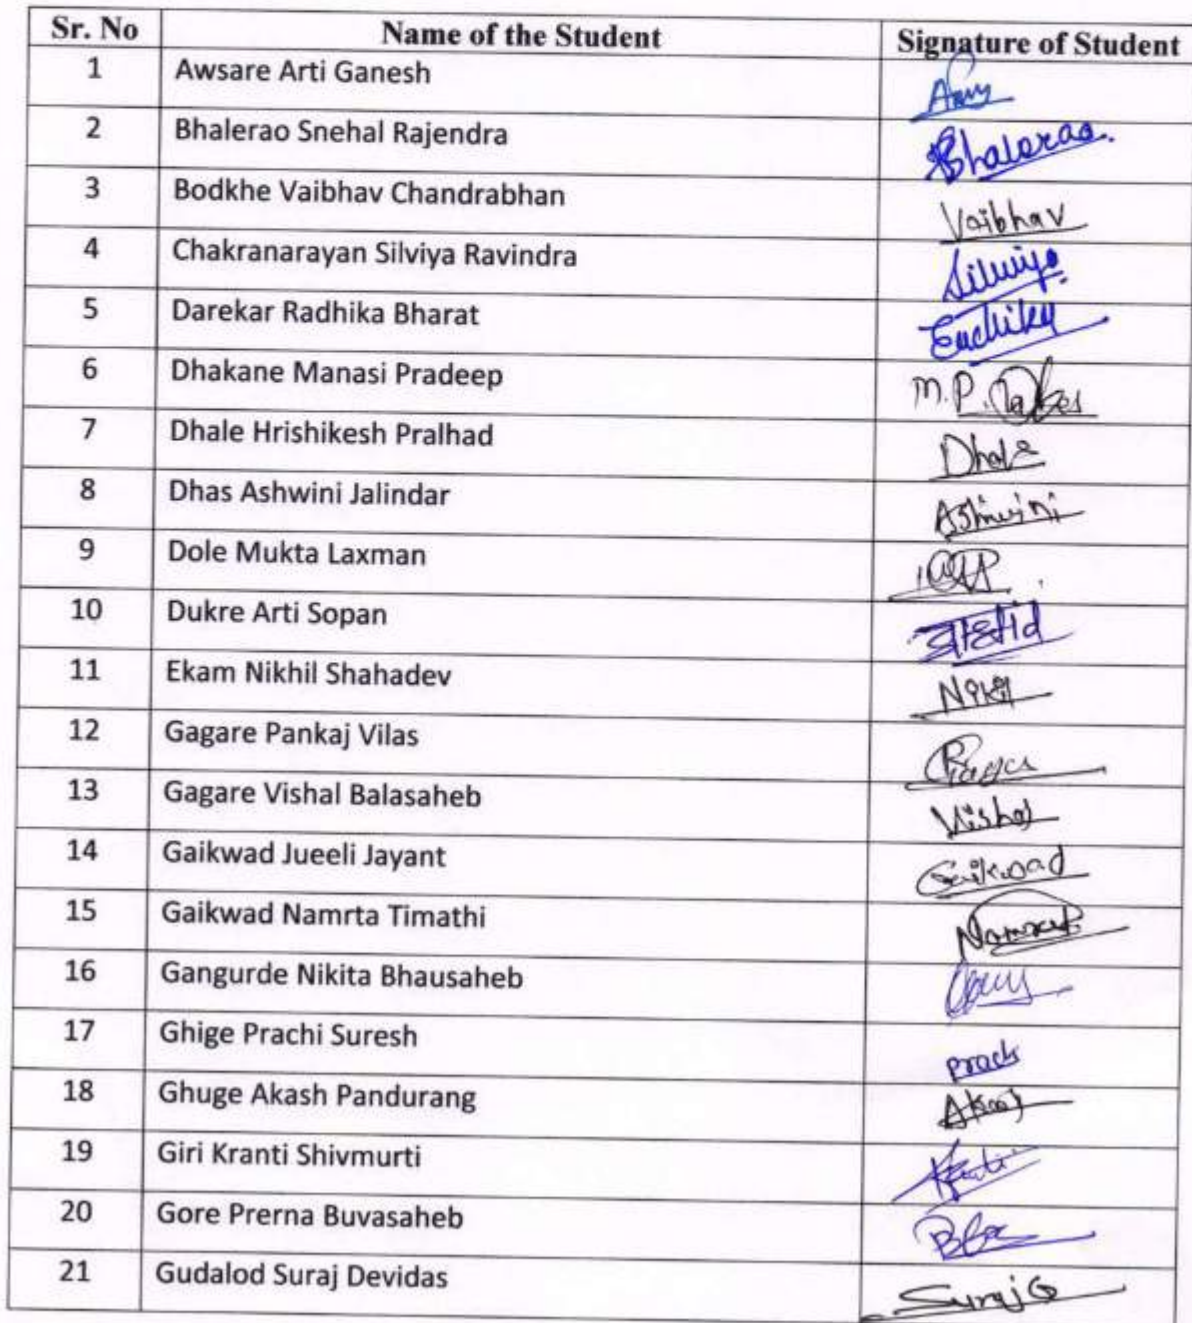 Sr. No Name of the Student Signature of Student
1 Awsare Arti Ganesh
2 Bhalerao Snehal Rajendra Bhalerao.
3 Bodkhe Vaibhav Chandrabhan Vaibhav
4 Chakranarayan Silviya Ravindra
5 Darekar Radhika Bharat
6 Dhakane Manasi Pradeep M.P.
7 Dhale Hrishikesh Pralhad Dhale
8 Dhas Ashwini Jalindar Ashwini
9 Dole Mukta Laxman
10 Dukre Arti Sopan
11 Ekam Nikhil Shahadev
12 Gagare Pankaj Vilas
13 Gagare Vishal Balasaheb Vishal
14 Gaikwad Jueeli Jayant Gaikwad
15 Gaikwad Namrta Timathi
16 Gangurde Nikita Bhausaheb
17 Ghige Prachi Suresh
18 Ghuge Akash Pandurang
19 Giri Kranti Shivmurti
20 Gore Prerna Buvasaheb
21 Gudalod Suraj Devidas Suraj G